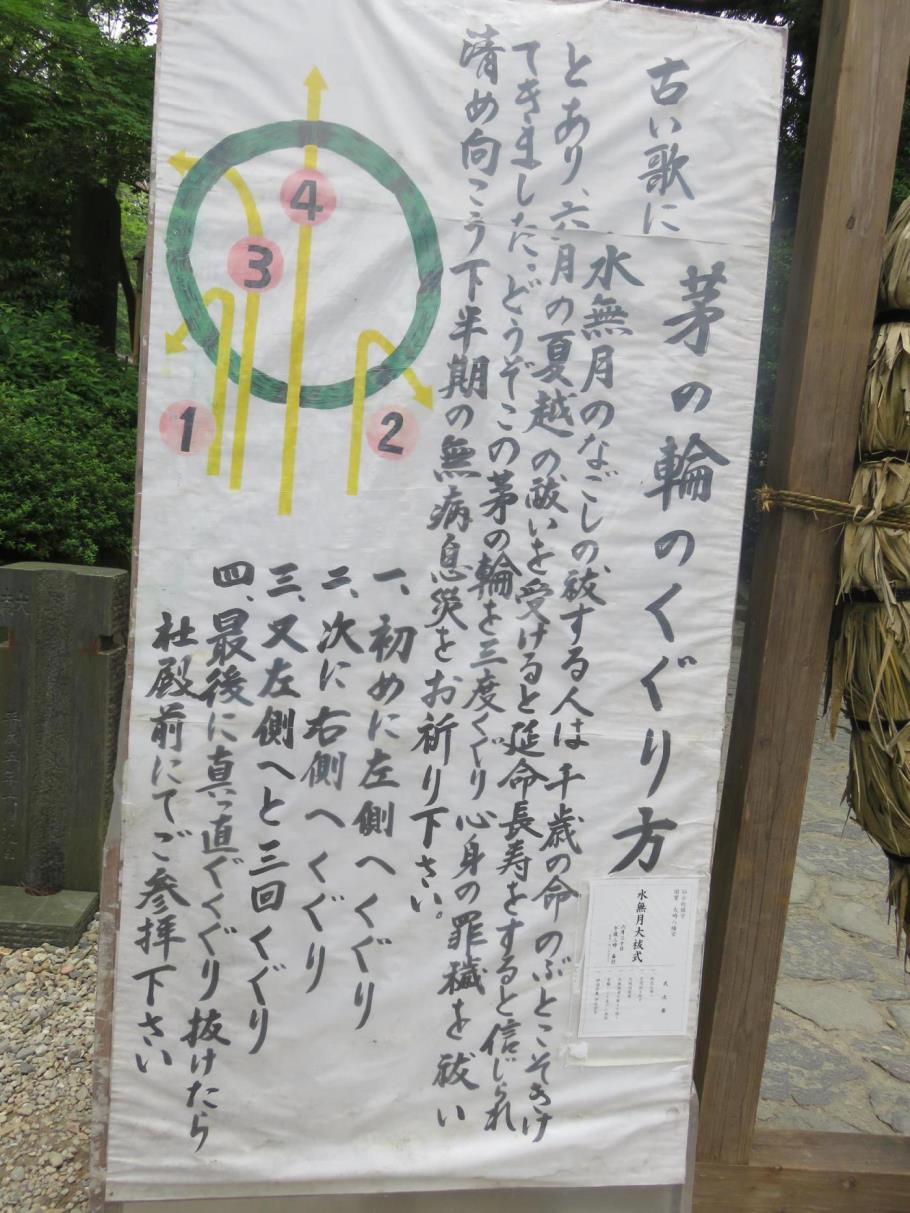 茅の輪のくぐり方
古い歌に
水無月のなごしの祓する人は千歳の命のぶとこそきけ
とあり、六月の夏越の祓いを受けると延命長寿をすると信じられ
てきました。どうぞこの茅の輪を三度くぐり心身の罪穢を祓い
清め向こう下半期の無病息災をお祈り下さい。
一、初めに左側へくぐり
二、次に右側へくぐり
三、又左側へと三回くぐり
四、最後に真っ直ぐくぐり抜けたら
社殿前にてご参拝下さい
1
2
3
4
国宝 大崎八幡宮
水無月大祓式
六月三十日
式次第